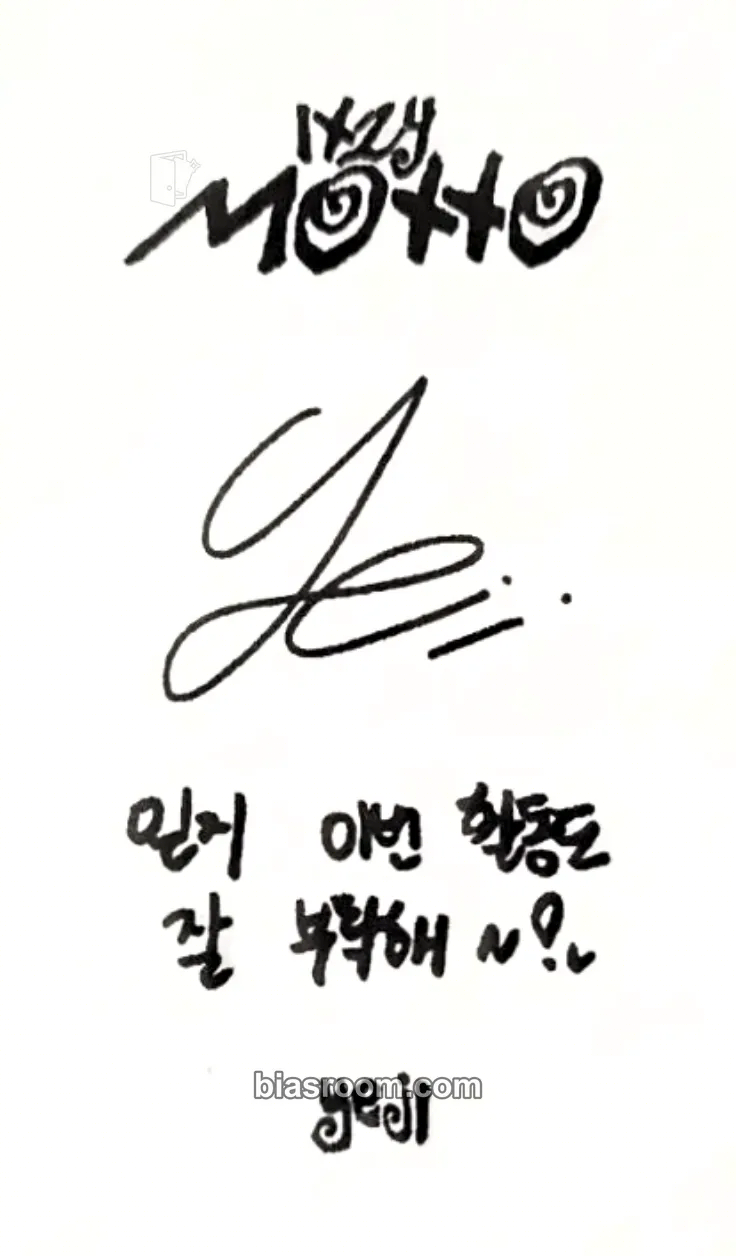 ITZY
MOTTO
Ye...
믿지 이번 활동도
잘 부탁해 ~ ?
biasroom.com
yeji